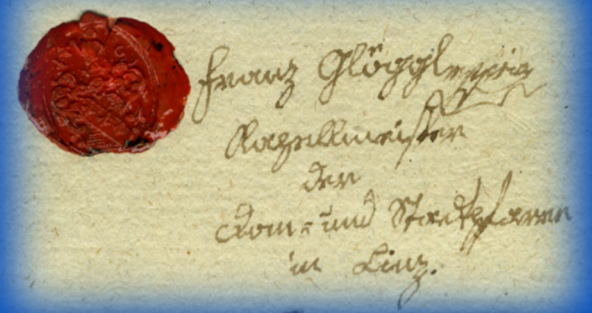 Franz Glöggl
Kapellmeister
der
Dom- und Stadtpfarren
in Linz.